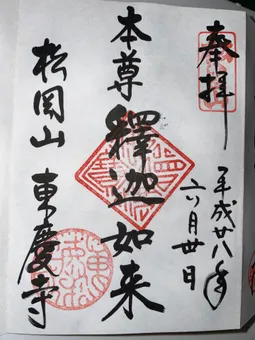 奉拝
平成廿八年
六月廿日
本尊 釋迦如来
松岡山 東慶寺